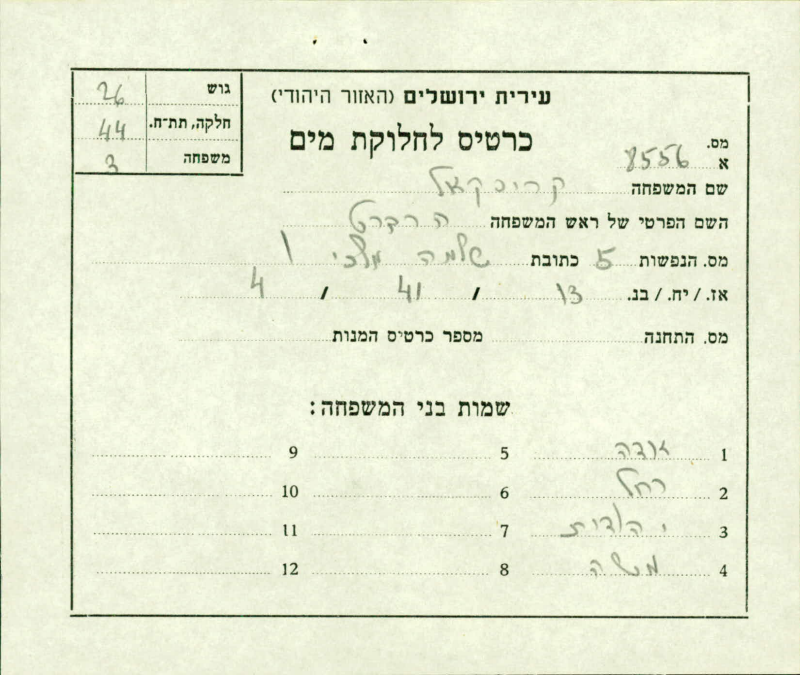 עירית ירושלים (האזור היהודי)
כרטיס לחלוקת מים
גוש 26
חלקה, תת־ח. 44
משפחה 3
מס.
א 8556
שם המשפחה
השם הפרטי של ראש המשפחה הרברט
מס. הנפשות 5 כתובת שלמה מלכי 1
אז. / יח. / בנ. 13 / 41 / 4
מס. התחנה מספר כרטיס המנות
שמות בני המשפחה:
1 5 9
2 רחל 6 10
3 יהודית 7 11
4 משה 8 12